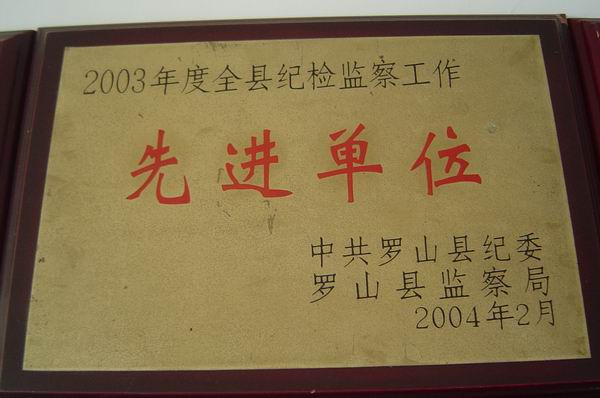 2003年度全县纪检监察工作
先进单位
中共罗山县纪委
罗山县监察局
2004年2月